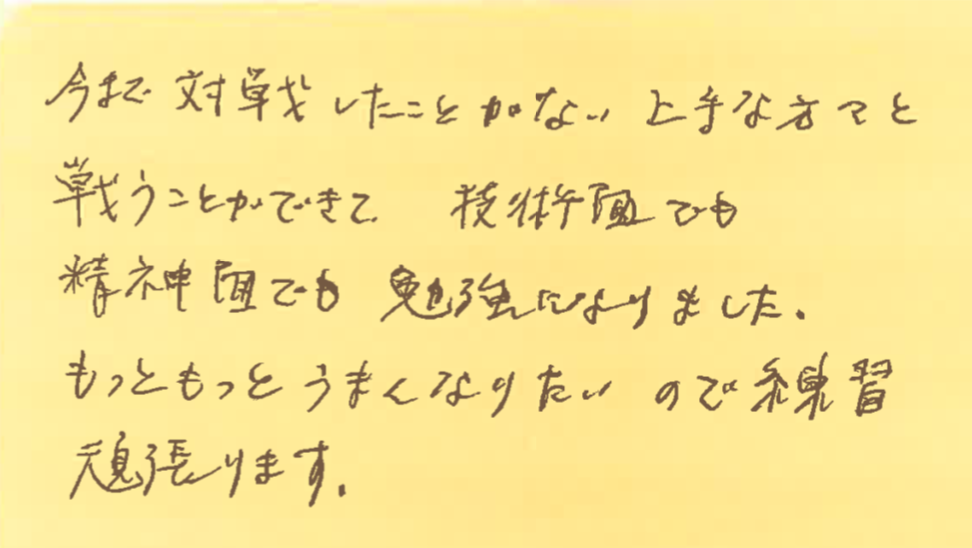 今まで対戦したことがない上手な方々と
戦うことができて 技術面でも
精神面でも 勉強になりました。
もっともっとうまくなりたいので練習
頑張ります。